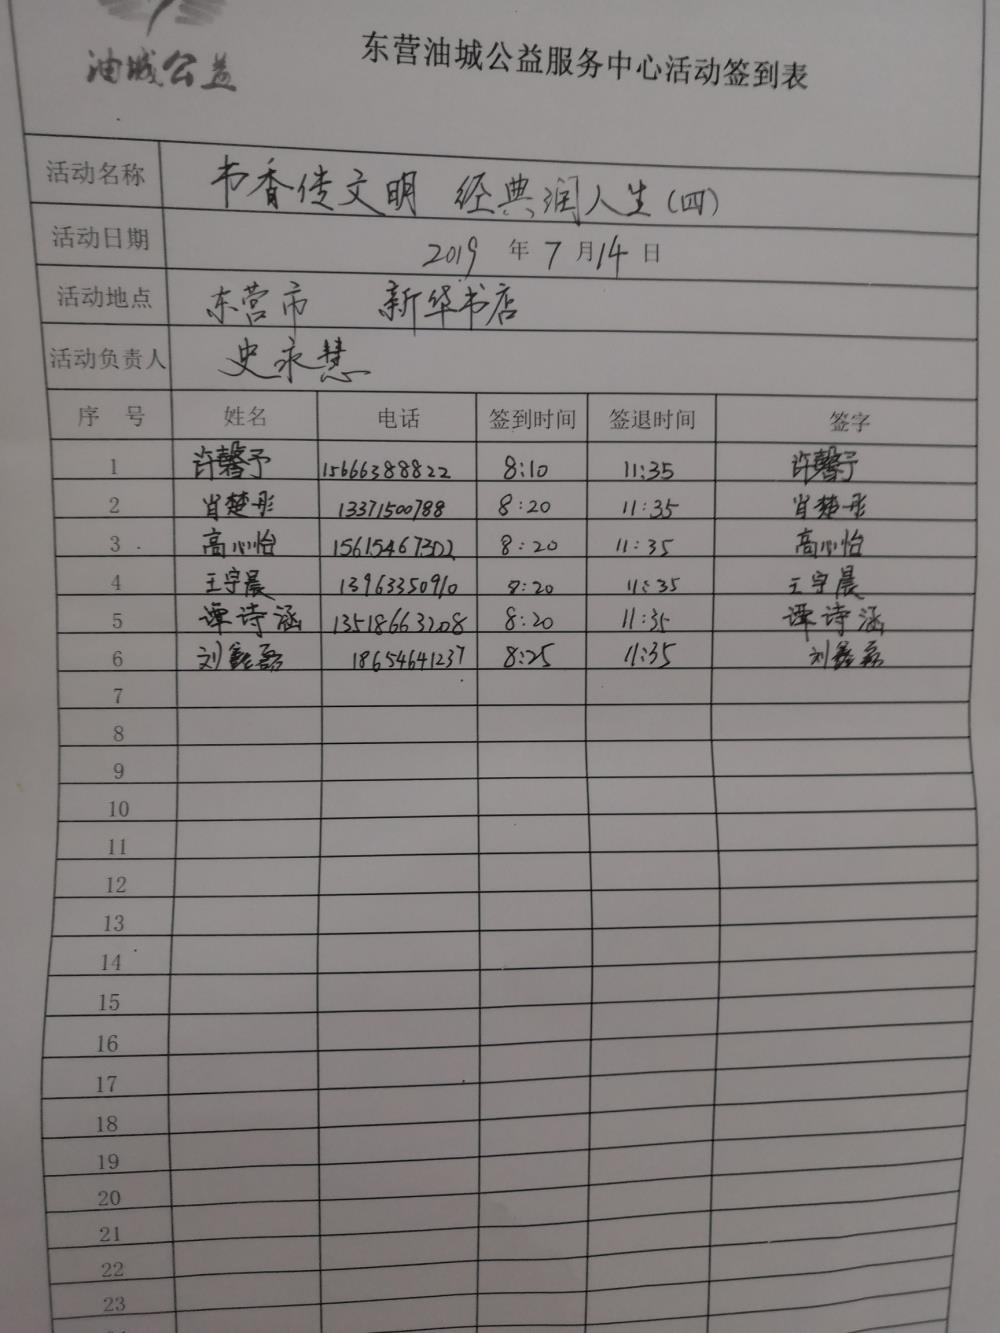 油城公益
东营油城公益服务中心活动签到表
活动名称 书香传文明 经典润人生(四)
活动日期 2019 年 7 月 14 日
活动地点 东营市 新华书店
活动负责人 史永慧
序 号 姓名 电话 签到时间 签退时间 签字
1 许馨予 15666388822 8:10 11:35 许馨予
2 肖楚彤 13371500788 8:20 11:35 肖楚彤
3 高心怡 15615467302 8:20 11:35 高心怡
4 王宇晨 13963350910 8:20 11:35 王宇晨
5 谭诗涵 13518663208 8:20 11:35 谭诗涵
6 刘鑫磊 18654641237 8:25 11:35 刘鑫磊
7
8
9
10
11
12
13
14
15
16
17
18
19
20
21
22
23